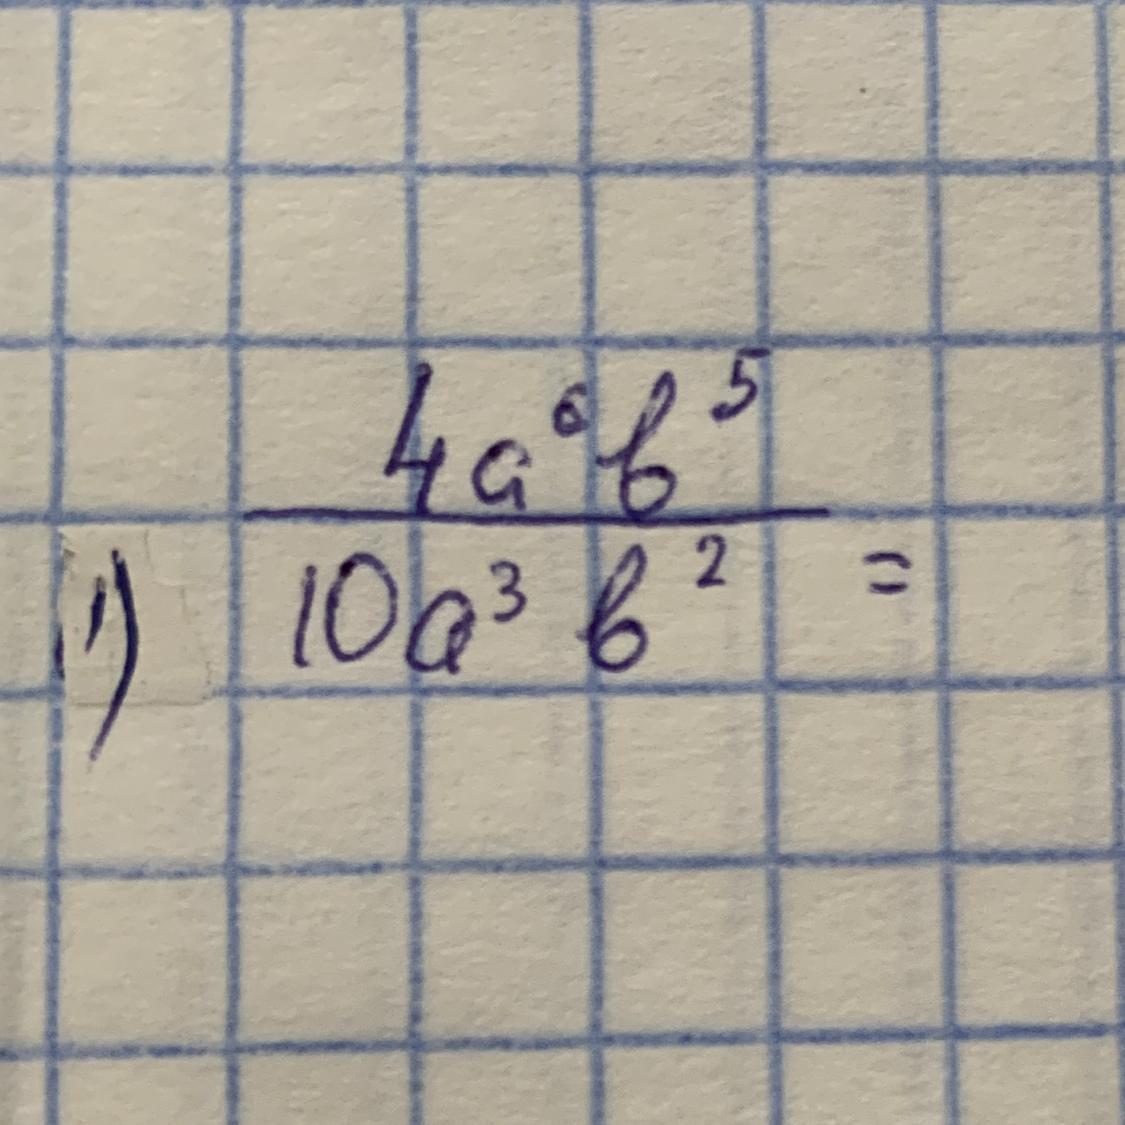 1) \frac{4a^6b^5}{10a^3b^2} =